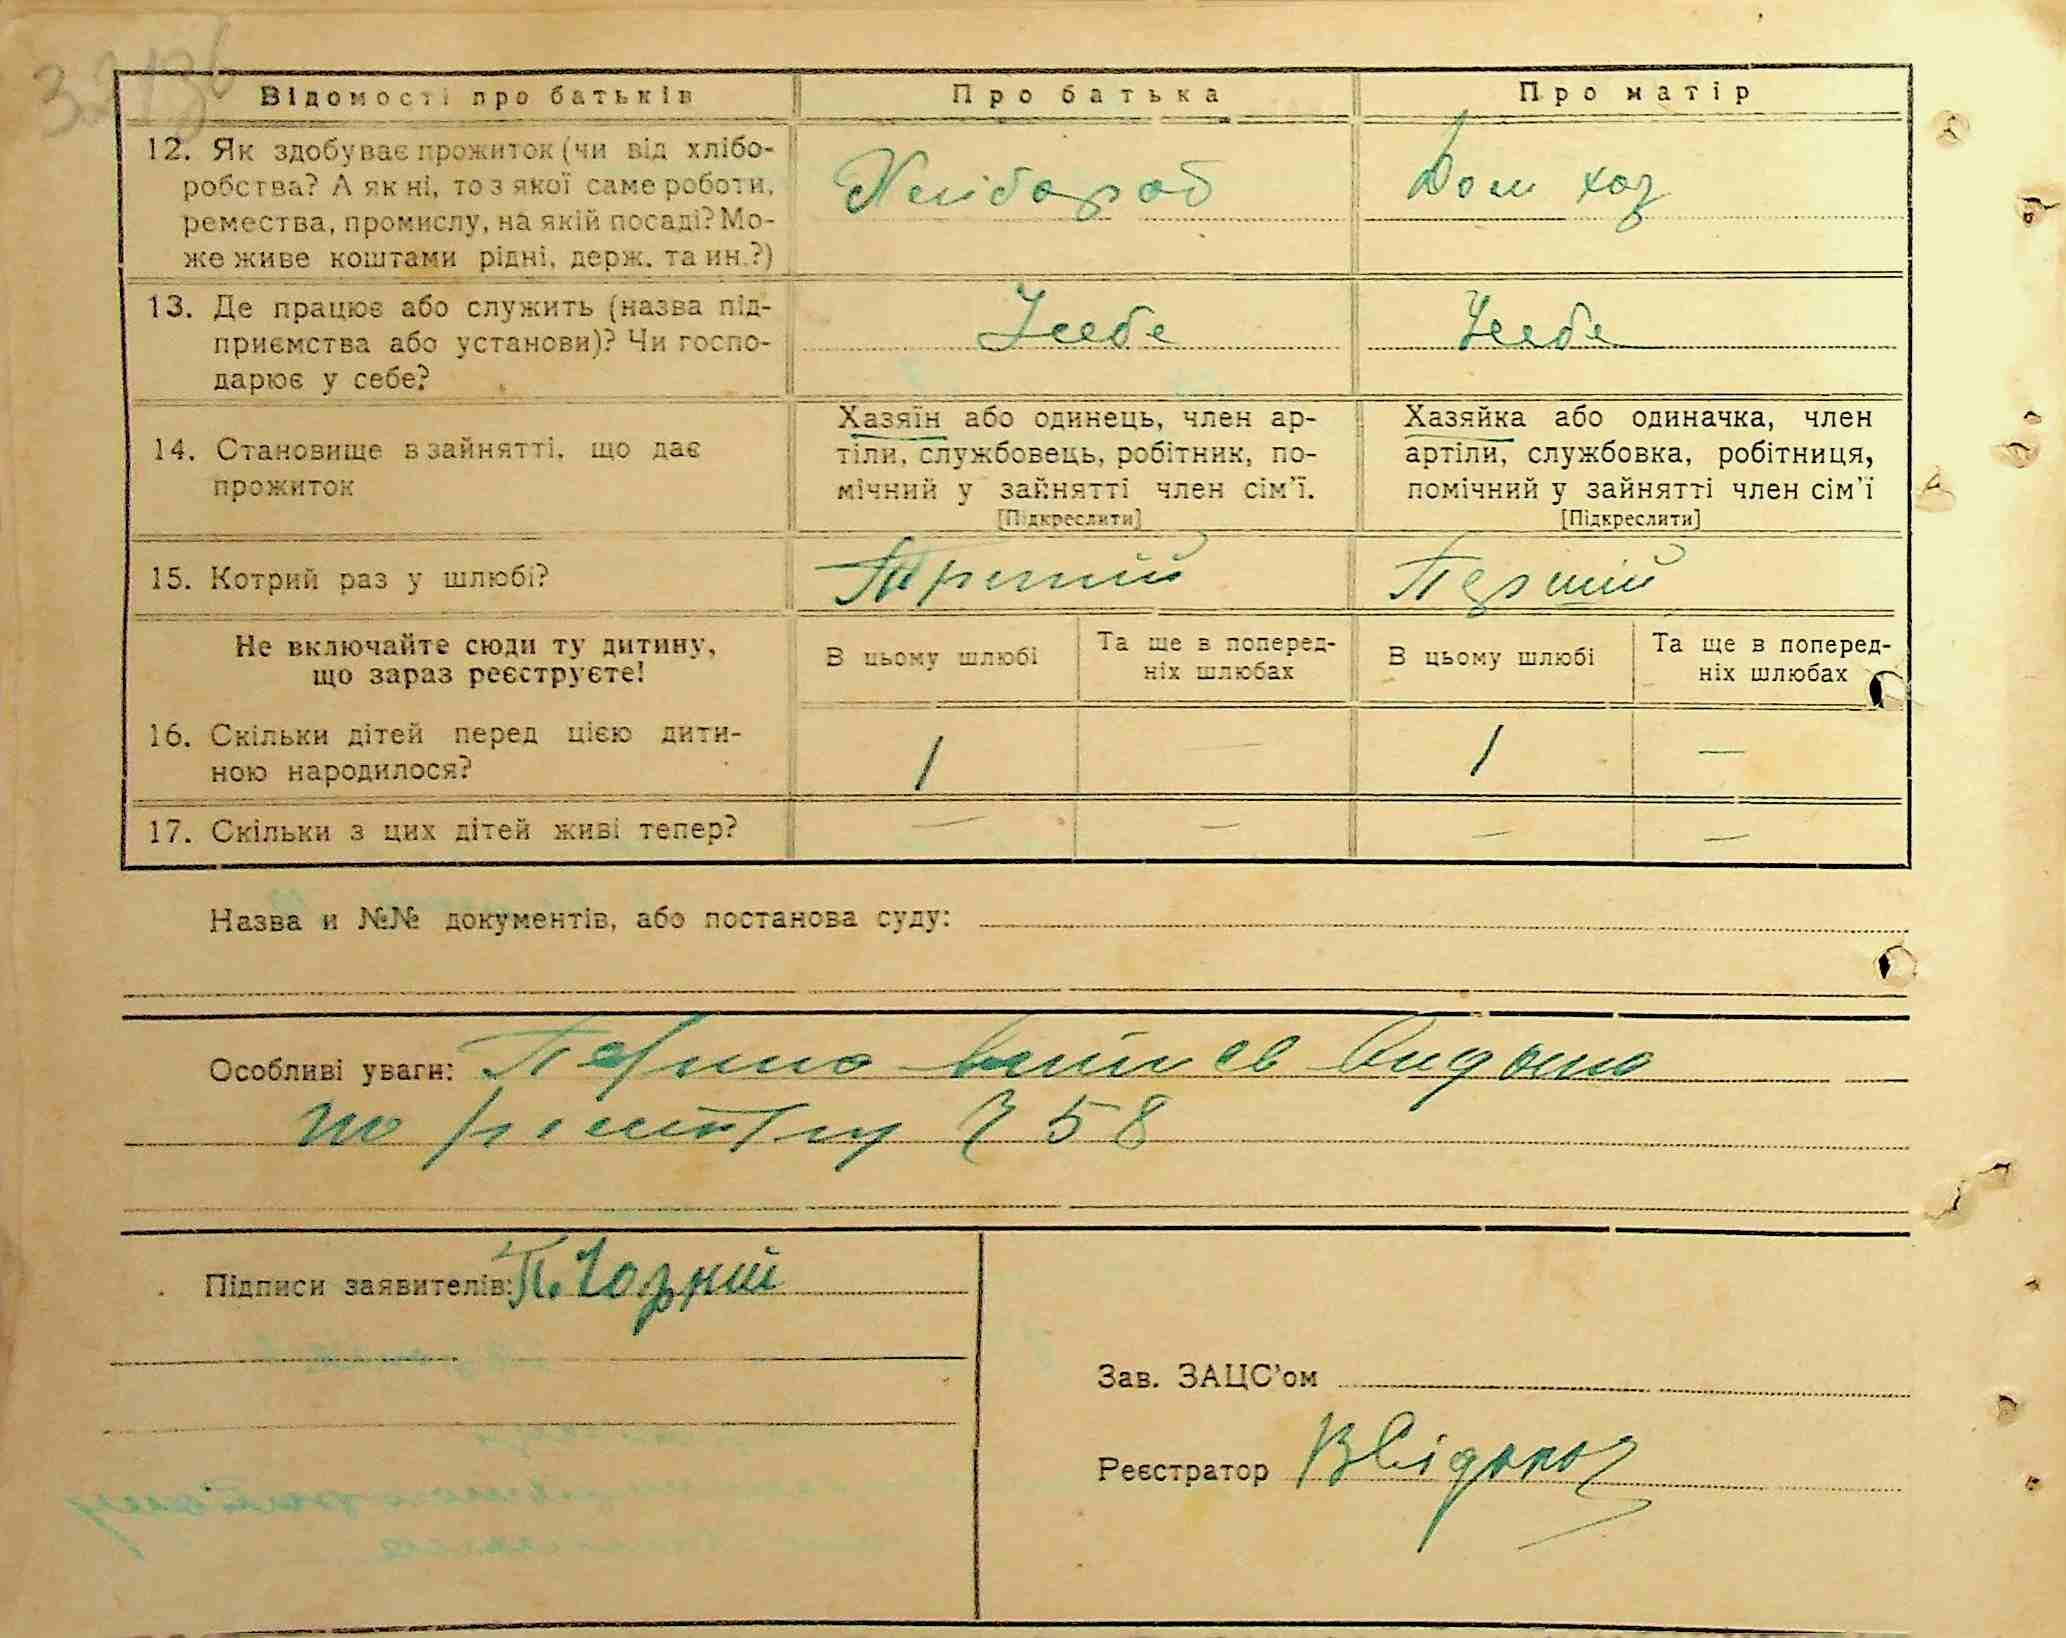 Відомості про батьків Про батька Про матір
12. Як здобуває прожиток (чи від хлібо-
робства? А як ні, то з якої саме роботи,
ремества, промислу, на якій посаді? Мо-
же живе коштами рідні, держ. та ин.?)
Хлібороб Дом хоз
13. Де працює або служить (назва під-
приємства або установи)? Чи госпо-
дарює у себе?
Усебе Усебе
14. Становище в зайнятті, що дає
прожиток
Хазяїн або одинець, член ар-
тіли, службовець, робітник, по-
мічний у зайнятті член сім'ї.
[Підкреслити]
Хазяйка або одиначка, член
артіли, службовка, робітниця,
помічний у зайнятті член сім'ї
[Підкреслити]
15. Котрий раз у шлюбі? Перший
Не включайте сюди ту дитину,
що зараз реєструєте!
В цьому шлюбі
Та ще в поперед-
ніх шлюбах
В цьому шлюбі
Та ще в поперед-
ніх шлюбах
16. Скільки дітей перед цією дити-
ною народилося?
1 — 1 —
17. Скільки з цих дітей живі тепер? — — — —
Назва и №№ документів, або постанова суду:
Особливі уваги: видана
по 758
Підписи заявителів: П. Чорній
Зав. ЗАЦС'ом
Реєстратор